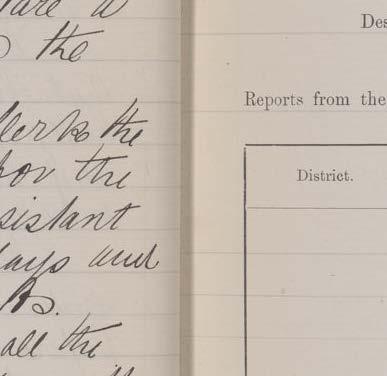 a
the
the
for the
sistant
days and
all the
Des
Reports from the
District.